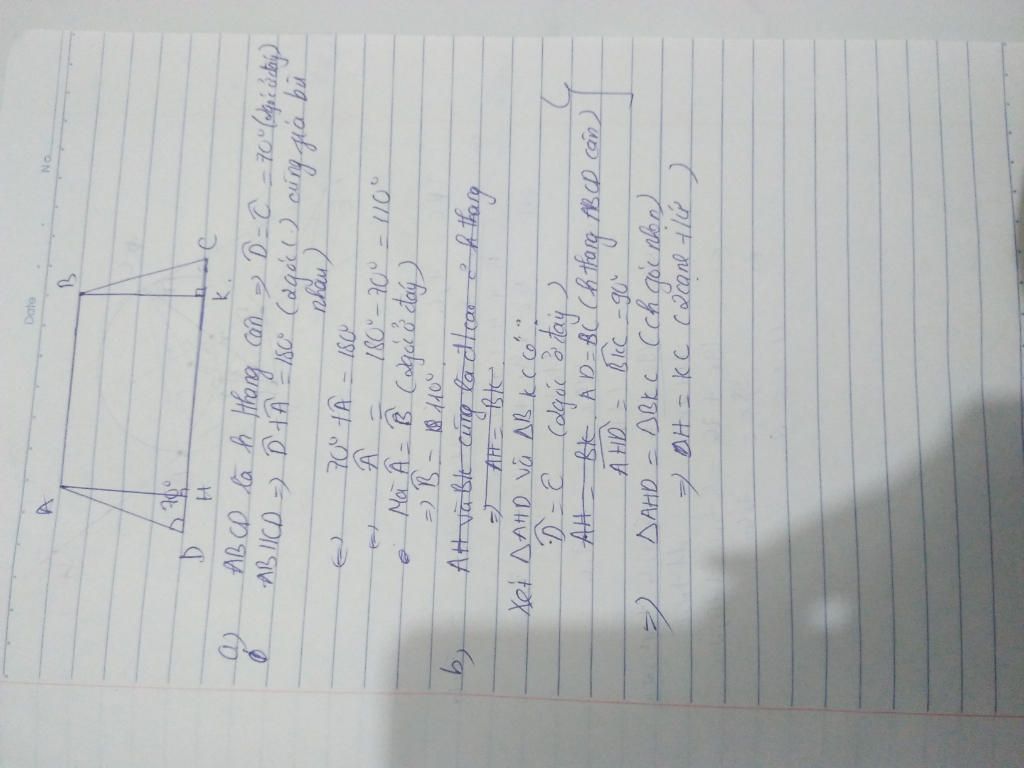 No
Date
A
B
70°
D
H
K
C
a) ABCD là h thang cân => D̂ = Ĉ = 70° (2góc ở đáy)
AB//CD => D̂ + Â = 180° (2góc cùng phía bù
nhau)
70° + Â = 180°
 = 180° - 70° = 110°
Mà Â = B̂ (2góc ở đáy)
=> B̂ = 110°
b) AH và BK cùng là đ cao ở h thang
=> AH = BK
Xét △AHD và △BKC có:
D̂ = Ĉ (2góc ở đáy)
AH = BK AD = BC (h thang ABCD cân)
AHD = = 90°
=> △AHD = △BKC (Ch góc nhọn)
=> DH = KC (2cạnh t/ứ)